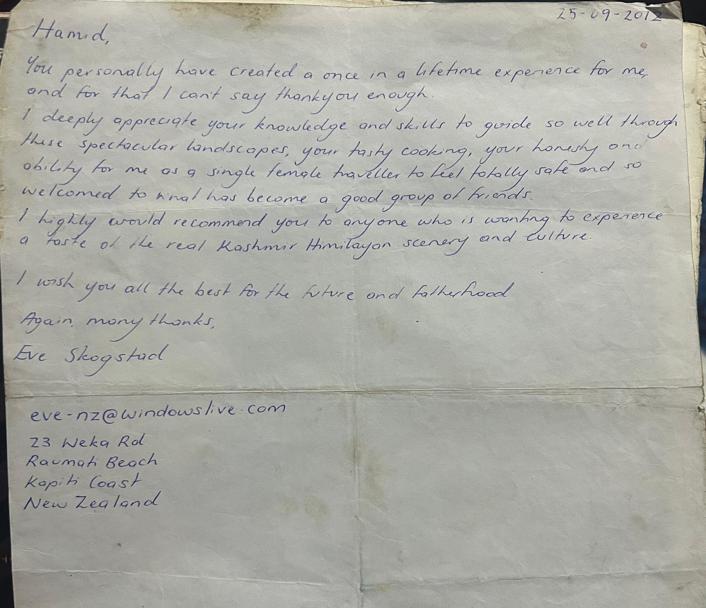 25-09-2012
Hamid,
You personally have created a once in a lifetime experience for me,
and for that I can't say thankyou enough.
I deeply appreciate your knowledge and skills to guide so well through
these spectacular landscapes, your tasty cooking, your honesty and
ability for me as a single female traveller to feel totally safe and so
welcomed to what has become a good group of friends.
I highly would recommend you to anyone who is wanting to experience
a taste of the real Kashmir Himilayan scenery and culture.
I wish you all the best for the future and fatherhood
Again, many thanks,
Eve Skogstad
eve-nz@windowslive.com
23 Weka Rd
Raumati Beach
Kapiti Coast
New Zealand